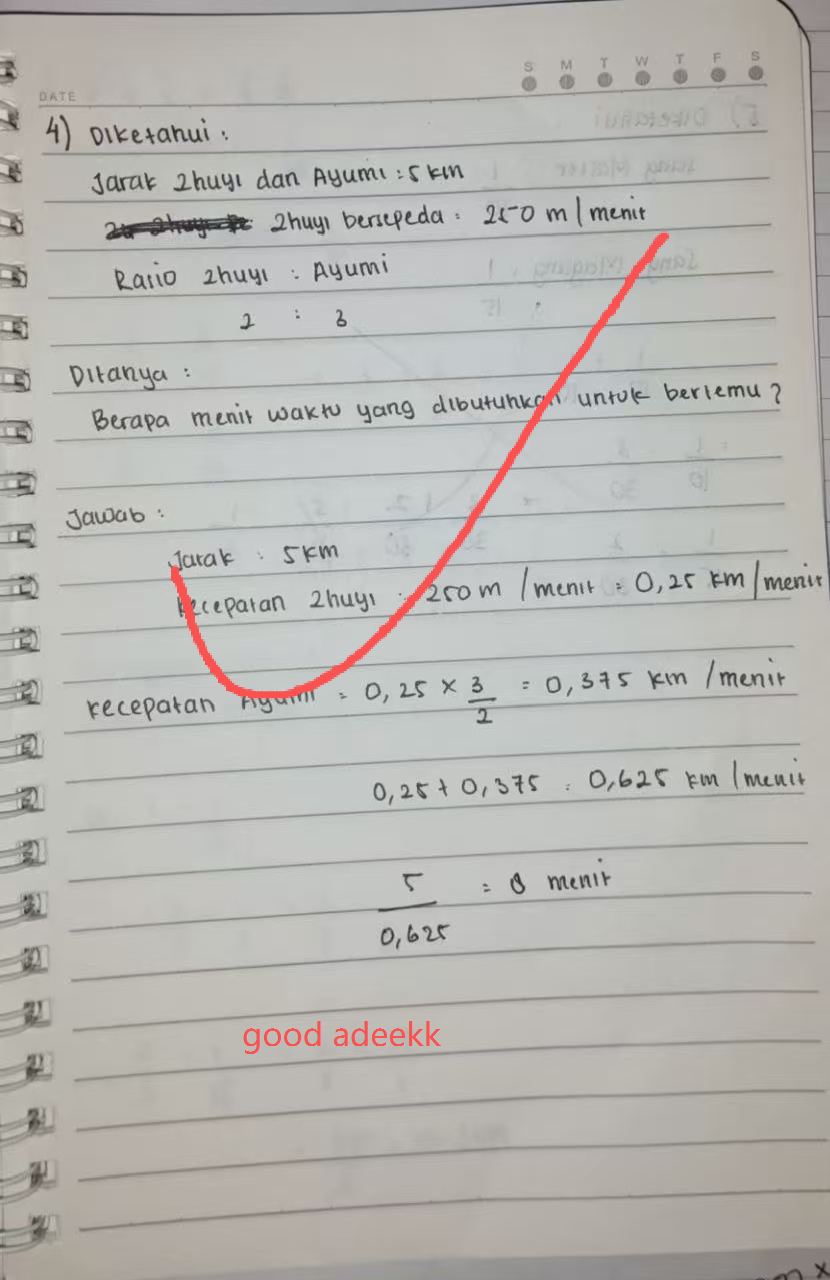 S M T W T F S
DATE
4) Diketahui :
Jarak Zhuyi dan Ayumi : 5 km
Zhuyi bersepeda : 250 m / menit
Rasio Zhuyi : Ayumi
2 : 3
Ditanya :
Berapa menit waktu yang dibutuhkan untuk bertemu ?
Jawab :
Jarak : 5 km
Kecepatan Zhuyi : 250 m / menit = 0,25 km / menit
Kecepatan Ayumi = 0,25 × 3/2 = 0,375 km / menit
0,25 + 0,375 = 0,625 km / menit
5/0,625 = 8 menit
good adeekk